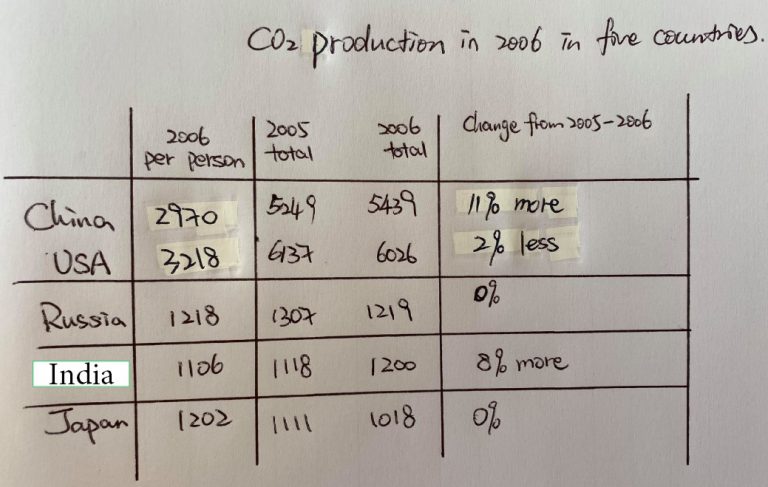 CO2 production in 2006 in five countries.
2006 per person 2005 total 2006 total Change from 2005-2006
China 2970 5249 5439 11% more
USA 3218 6137 6026 2% less
Russia 1218 1307 1219 0%
India 1106 1118 1200 8% more
Japan 1202 1111 1018 0%